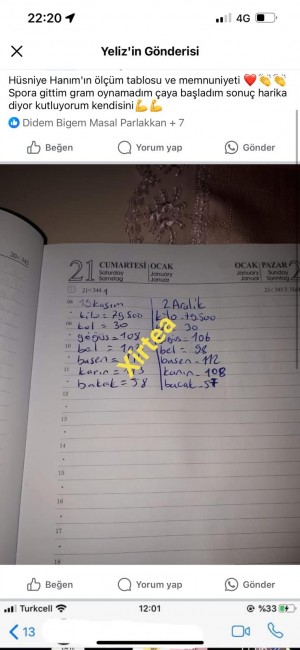 22:20
4G
Yeliz'in Gönderisi
Hüsniye Hanım'ın ölçüm tablosu ve memnuniyeti ❤️👏👏
Spora gittim gram oynamadım çaya başladım sonuç harika
diyor kutluyorum kendisini💪💪
Didem Bigem Masal Parlakkan + 7
Beğen Yorum yap Gönder
21 CUMARTESİ OCAK
Saturday January
Samstag Januar
OCAK PAZAR
January Sunday
Januar Sonntag
21-344
kasım 2 Aralık
kilo = 79500 kilo 79500
kol = 30 30
göğüs = 108 106
bel = bel = 98
basen = basen = 112
karın = karın - 108
bacak = 58 bacak - 57
Xirtea
11
12
13
14
15
16
17
18
Beğen Yorum yap Gönder
Turkcell 12:01 %33
13